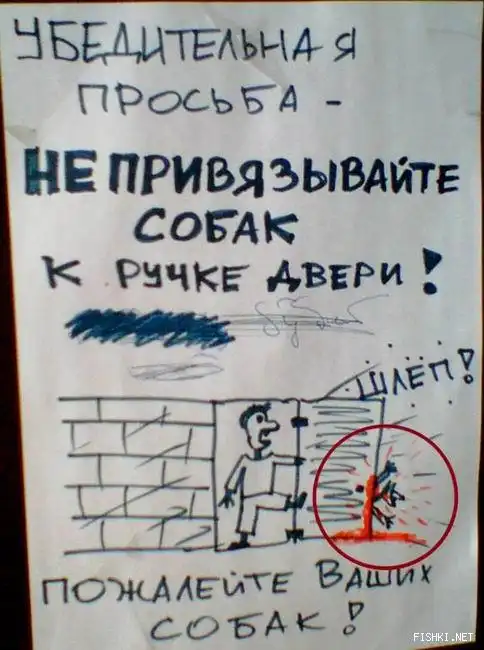 УБЕДИТЕЛЬНАЯ
ПРОСЬБА -
НЕ ПРИВЯЗЫВАЙТЕ
СОБАК
К РУЧКЕ ДВЕРИ!
ШЛЁП!
ПОЖАЛЕЙТЕ ВАШИХ
СОБАК!
FISHKI.NET